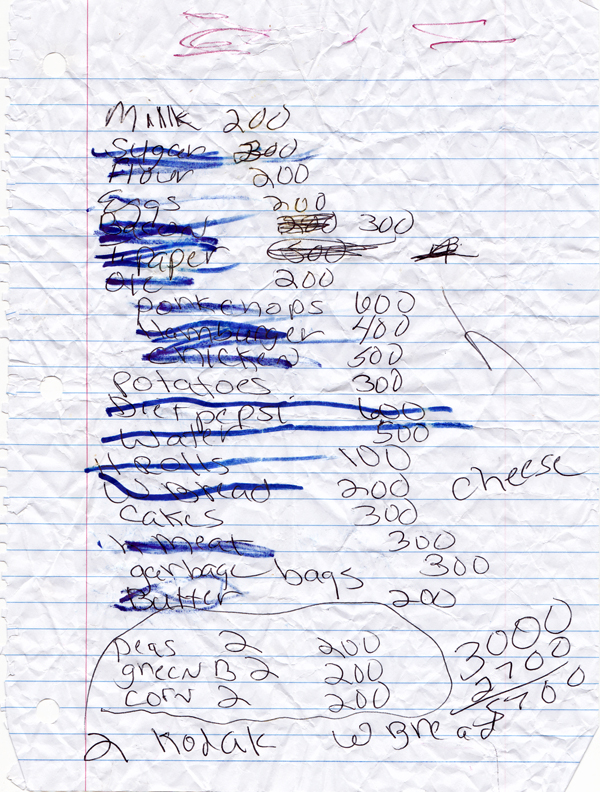 Millk 200
Sugar 300
Flour 200
Eggs 200
Bacon 300
t paper 500
Oil 200
porkchops 600
Hamburger 400
chicken 500
potatoes 300
Diet pepsi 600
Water 500
H Rolls 100
W Bread 200 cheese
cakes 300
Meat 300
garbage bags 300
Butter 200
peas 2 200
green B 2 200
corn 2 200
3000
2700
5700
2 Kodak W Bread